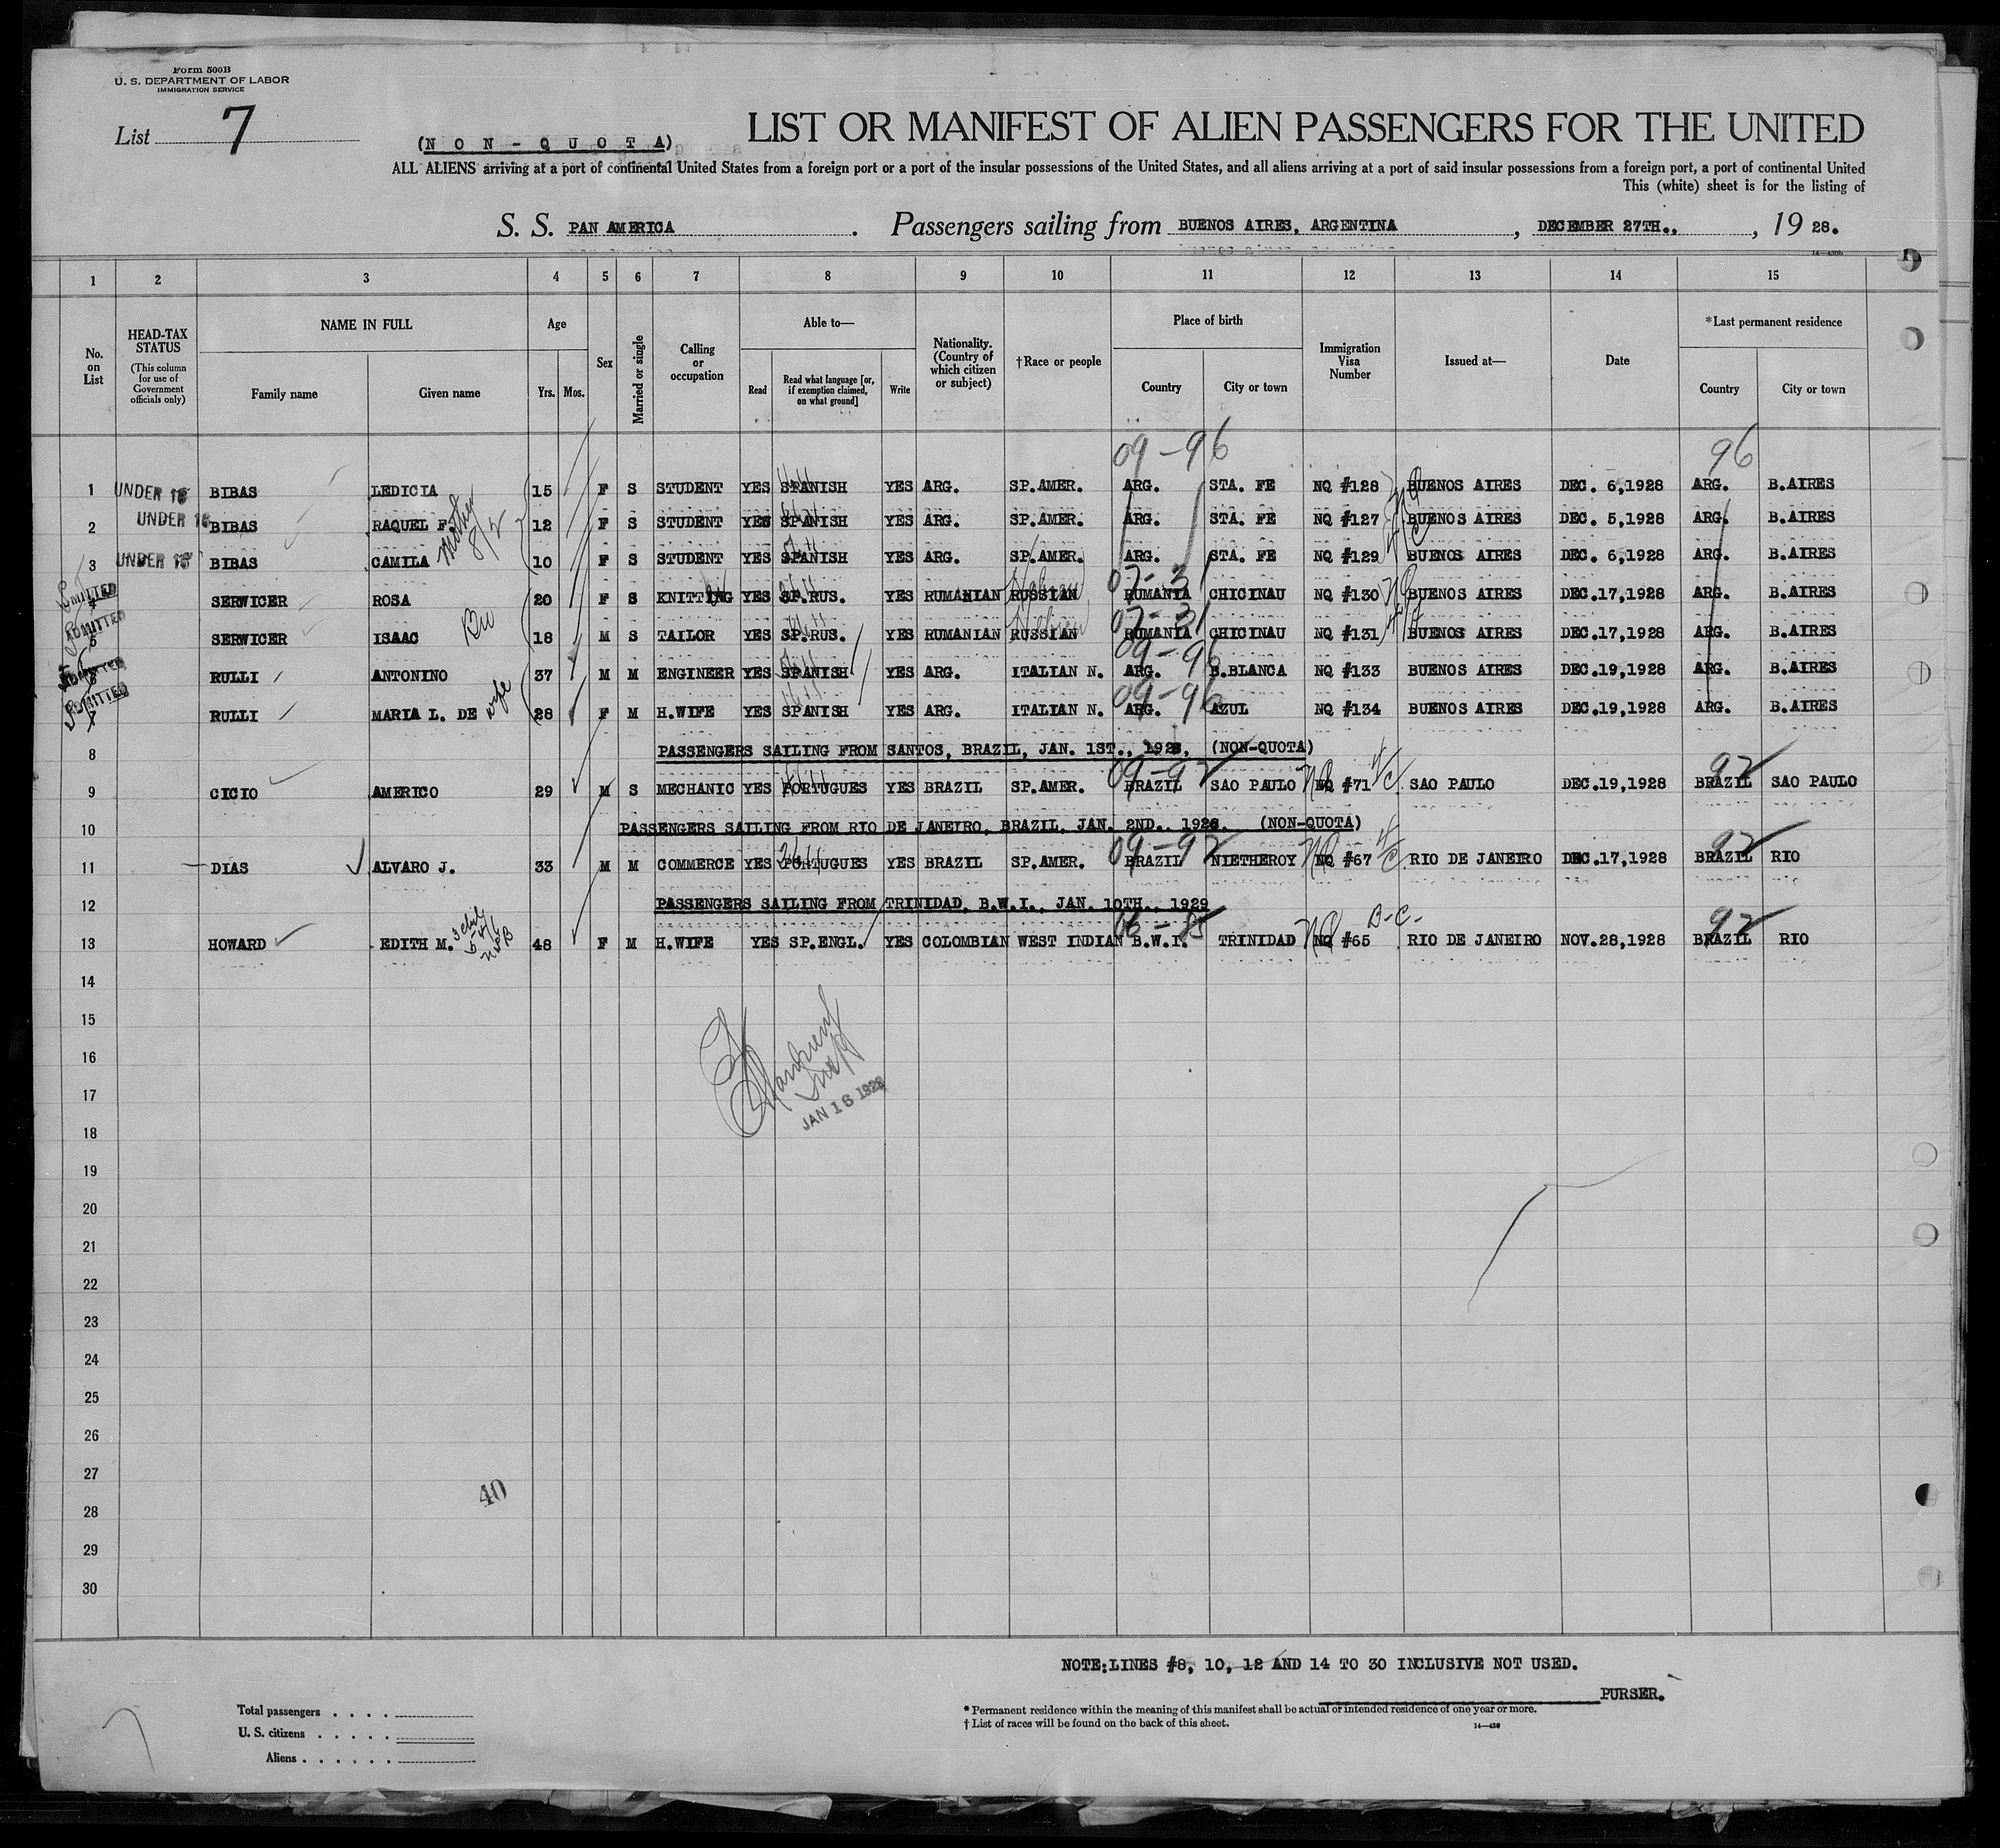 Form 500B
U. S. DEPARTMENT OF LABOR
IMMIGRATION SERVICE
List 7
(NON-QUOTA)
LIST OR MANIFEST OF ALIEN PASSENGERS FOR THE UNITED
ALL ALIENS arriving at a port of continental United States from a foreign port or a port of the insular possessions of the United States, and all aliens arriving at a port of said insular possessions from a foreign port, a port of continental United
This (white) sheet is for the listing of
S. S. PAN AMERICA . Passengers sailing from BUENOS AIRES, ARGENTINA , DECEMBER 27TH., , 19 28.
1 2 3 4 5 6 7 8 9 10 11 12 13 14 15
No. on List
HEAD-TAX STATUS (This column for use of Government officials only)
NAME IN FULL Family name Given name
Age Yrs. Mos.
Sex
Married or single
Calling or occupation
Able to— Read Read what language [or, if exemption claimed, on what ground] Write
Nationality. (Country of which citizen or subject)
†Race or people
Place of birth Country City or town
Immigration Visa Number
Issued at—
Date
*Last permanent residence Country City or town
09-96 96
1 UNDER 16 BIBAS LEDICIA 15 F S STUDENT YES SPANISH YES ARG. SP.AMER. ARG. STA. FE NQ #128 BUENOS AIRES DEC. 6,1928 ARG. B.AIRES
2 UNDER 16 BIBAS RAQUEL F. 12 F S STUDENT YES SPANISH YES ARG. SP.AMER. ARG. STA. FE NQ #127 BUENOS AIRES DEC. 5,1928 ARG. B.AIRES
Mother 8/2
3 UNDER 16 BIBAS CAMILA 10 F S STUDENT YES SPANISH YES ARG. SP.AMER. ARG. STA. FE NQ #129 BUENOS AIRES DEC. 6,1928 ARG. B.AIRES
Hebrew 07-31
4 ADMITTED SERWICER ROSA 20 F S KNITTING YES SP.RUS. YES RUMANIAN RUSSIAN RUMANIA CHICINAU NQ #130 BUENOS AIRES DEC.17,1928 ARG. B.AIRES
Bro Hebrew 07-31
5 ADMITTED SERWICER ISAAC 18 M S TAILOR YES SP.RUS. YES RUMANIAN RUSSIAN RUMANIA CHICINAU NQ #131 BUENOS AIRES DEC.17,1928 ARG. B.AIRES
09-96
6 ADMITTED RULLI ANTONINO 37 M M ENGINEER YES SPANISH YES ARG. ITALIAN N. ARG. B.BLANCA NQ #133 BUENOS AIRES DEC.19,1928 ARG. B.AIRES
09-96
7 ADMITTED RULLI MARIA L. DE wife 28 F M H.WIFE YES SPANISH YES ARG. ITALIAN N. ARG. AZUL NQ #134 BUENOS AIRES DEC.19,1928 ARG. B.AIRES
8 PASSENGERS SAILING FROM SANTOS, BRAZIL, JAN. 1ST., 1928, (NON-QUOTA)
09-92 92
9 CICIO AMERICO 29 M S MECHANIC YES PORTUGUES YES BRAZIL SP.AMER. BRAZIL SAO PAULO NQ #71 SAO PAULO DEC.19,1928 BRAZIL SAO PAULO
10 PASSENGERS SAILING FROM RIO DE JANEIRO, BRAZIL, JAN. 2ND., 1928. (NON-QUOTA)
09-92 92
11 DIAS ALVARO J. 33 M M COMMERCE YES PORTUGUES YES BRAZIL SP.AMER. BRAZIL NIETHEROY NQ #67 RIO DE JANEIRO DEC.17,1928 BRAZIL RIO
12 PASSENGERS SAILING FROM TRINIDAD, B.W.I., JAN. 10TH., 1929
06-85 B-C- 92
13 HOWARD EDITH M. 48 F M H.WIFE YES SP.ENGL. YES COLOMBIAN WEST INDIAN B.W.I. TRINIDAD NQ #65 RIO DE JANEIRO NOV.28,1928 BRAZIL RIO
14
15
16
17
JAN 16 1929
18
19
20
21
22
23
24
25
26
27
40
28
29
30
NOTE:LINES #8, 10, 12 AND 14 TO 30 INCLUSIVE NOT USED.
PURSER.
Total passengers . . . .
U. S. citizens . . . . .
Aliens . . . . . .
* Permanent residence within the meaning of this manifest shall be actual or intended residence of one year or more.
† List of races will be found on the back of this sheet.
14—430